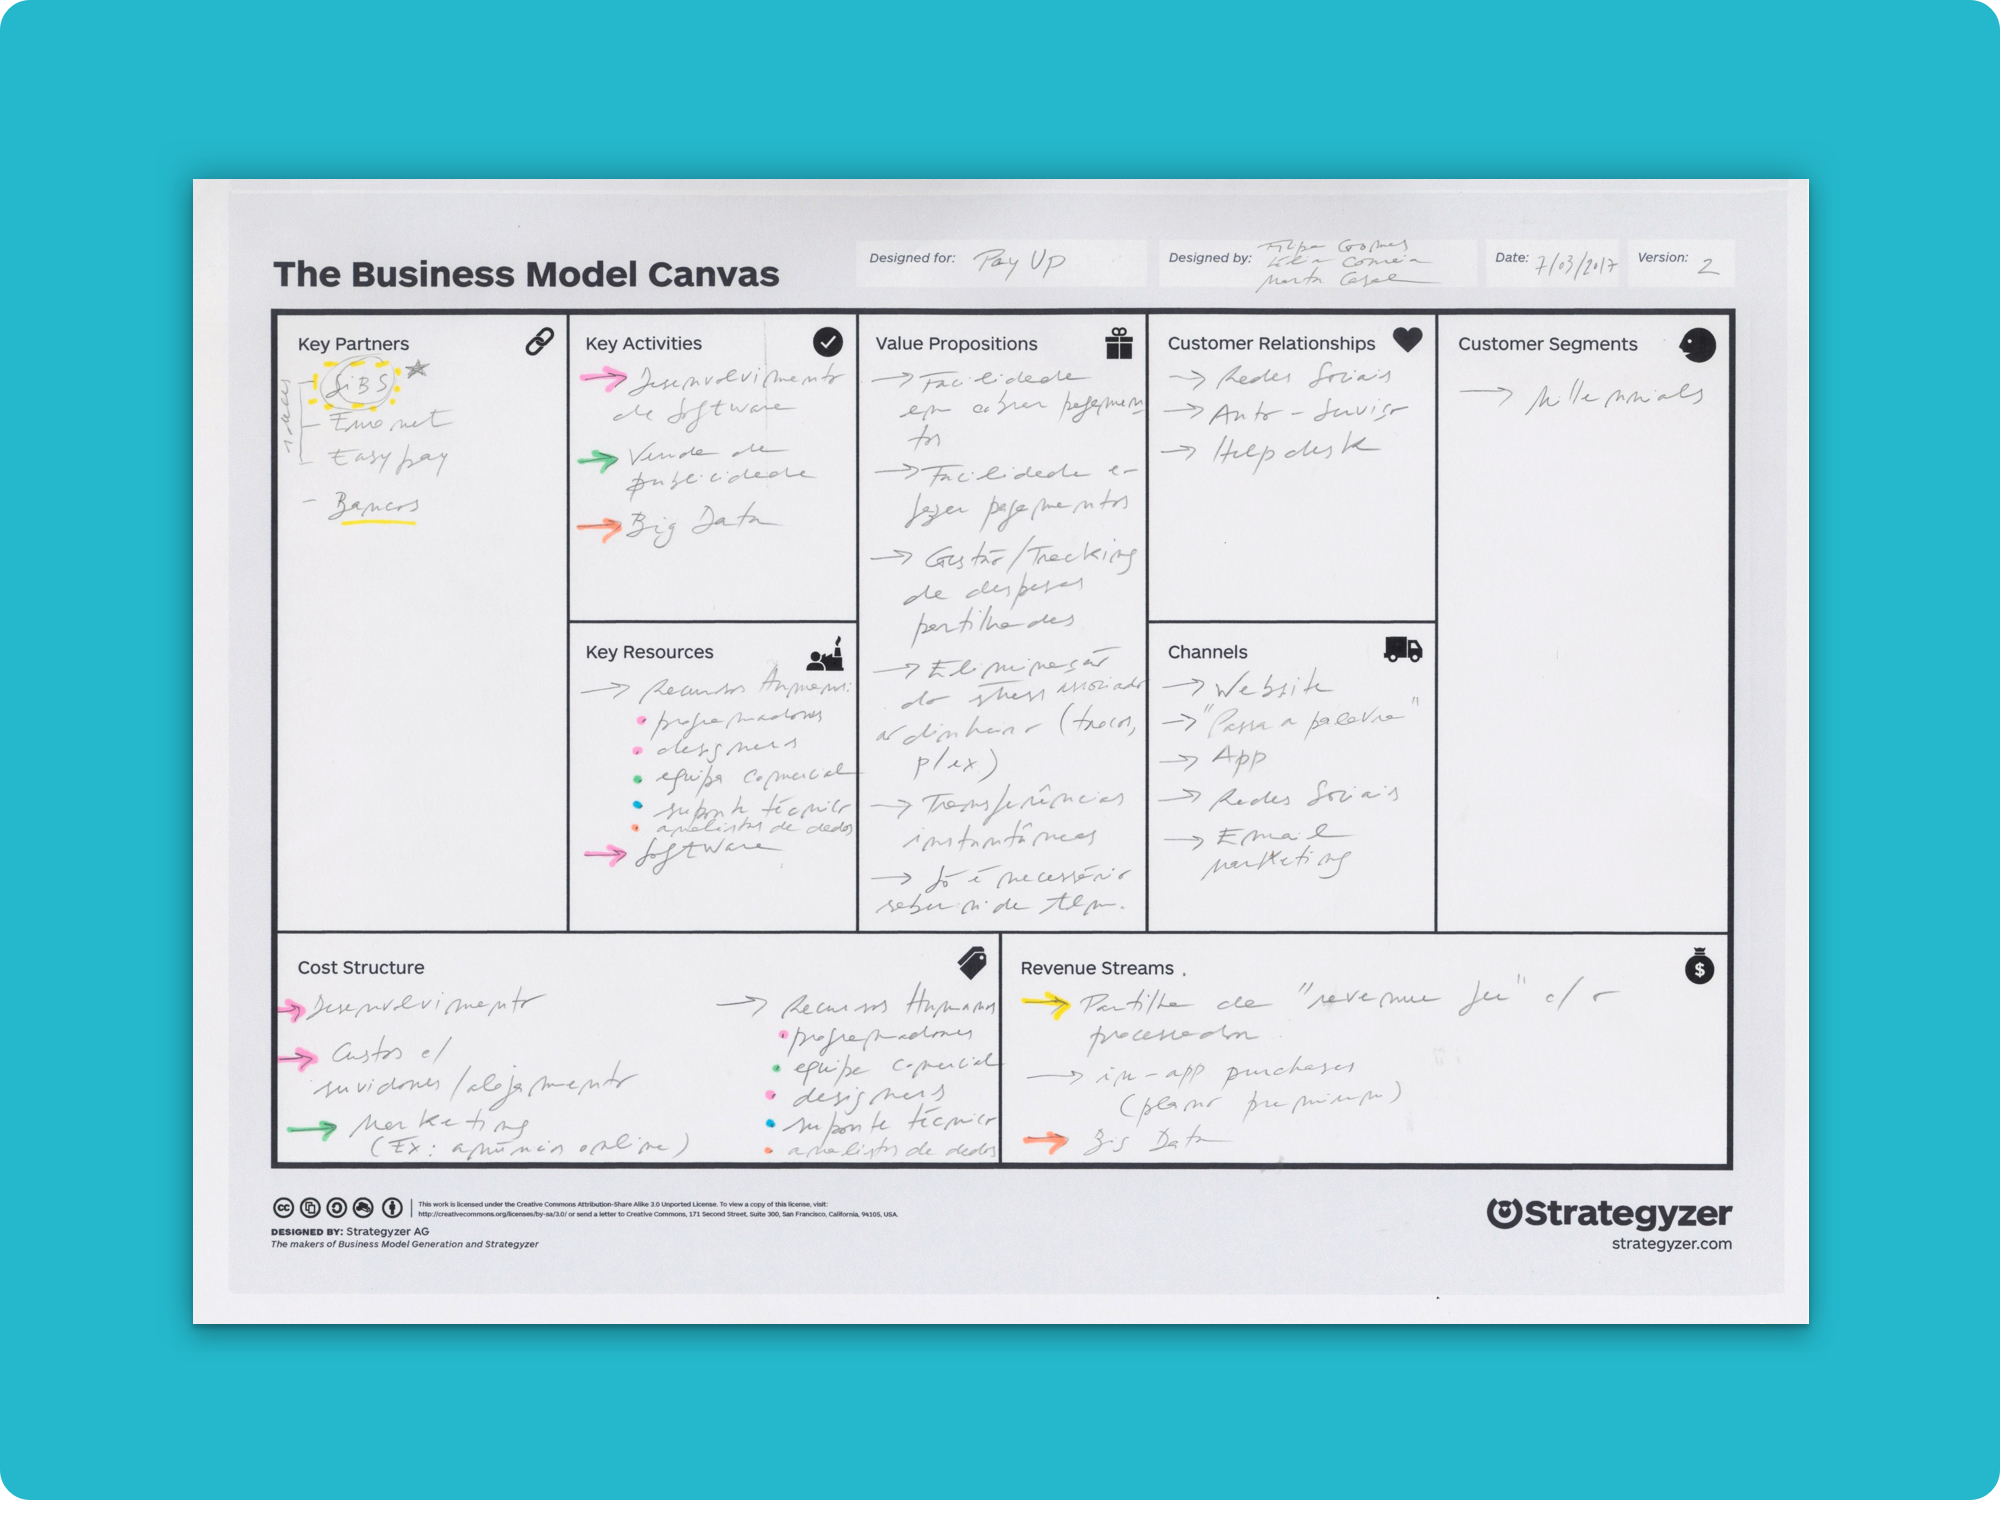 The Business Model Canvas
Designed for: Pay Up
Designed by: Filipa Gomes
Lélia Correia
Marta Casal
Date: 7/03/2017
Version: 2
Key Partners
SIBS
Euronet
Easypay
- Bancos
Key Activities
→ Desenvolvimento
de Software
→ Venda de
publicidade
→ Big Data
Key Resources
→ Recursos Humanos:
• programadores
• designers
• equipa comercial
• suporte técnico
• analistas de dados
→ Software
Value Propositions
→ Facilidade
em cobrar pagamen
tos
→ Facilidade em
fazer pagamentos
→ Gestão/Tracking
de despesas
partilhadas
→ Eliminação
do stress associado
a dinheiro (trocos,
p/ex)
→ Transferências
instantâneas
→ Só é necessário
saber n. de tlm.
Customer Relationships
→ Redes Sociais
→ Auto-Serviço
→ Helpdesk
Channels
→ Website
→ "Passa a palavra"
→ App
→ Redes Sociais
→ Email
marketing
Customer Segments
→ Millennials
Cost Structure
→ Desenvolvimento
→ Custos c/
servidores/alojamento
→ Marketing
(Ex: anúncios online)
→ Recursos Humanos
• programadores
• equipa comercial
• designers
• suporte técnico
• analistas de dados
Revenue Streams
→ Partilha de "revenue fee" c/ o
processador
→ in-app purchases
(plano premium)
→ Big Data
This work is licensed under the Creative Commons Attribution-Share Alike 3.0 Unported License. To view a copy of this license, visit:
http://creativecommons.org/licenses/by-sa/3.0/ or send a letter to Creative Commons, 171 Second Street, Suite 300, San Francisco, California, 94105, USA.
DESIGNED BY: Strategyzer AG
The makers of Business Model Generation and Strategyzer
Strategyzer
strategyzer.com